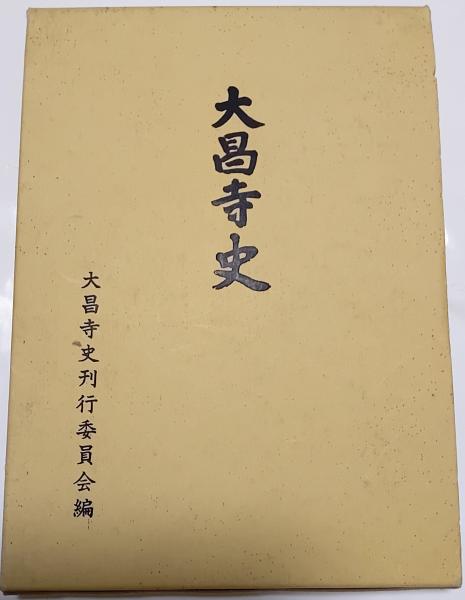 大昌寺史
大昌寺史刊行委員会編